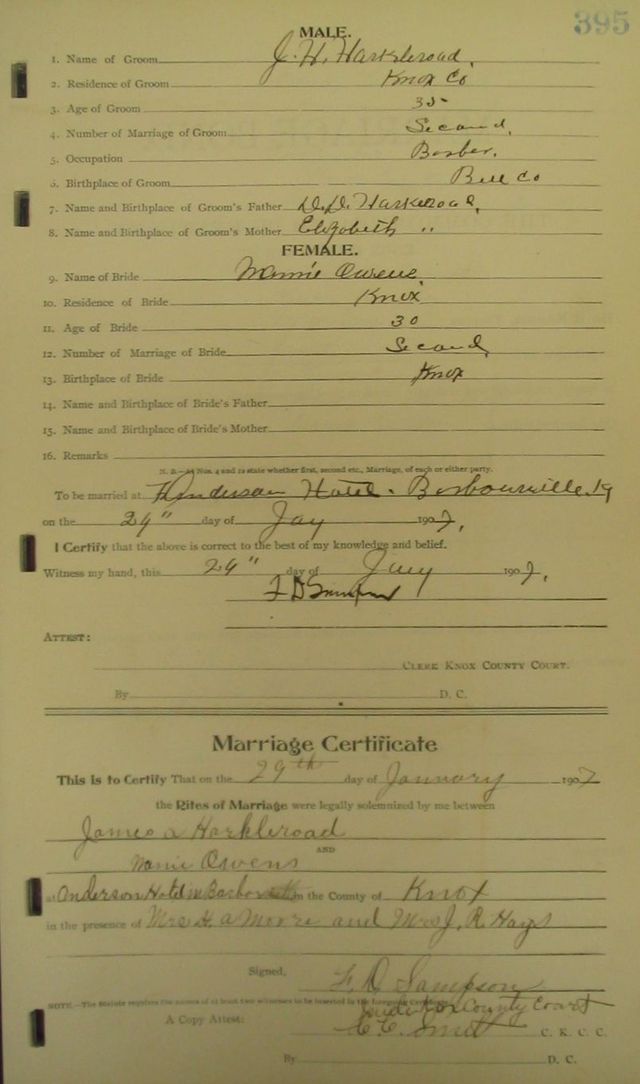 395
MALE.
1. Name of Groom J. H. Harkleroad,
2. Residence of Groom Knox Co
3. Age of Groom 35
4. Number of Marriage of Groom Second,
5. Occupation Barber,
6. Birthplace of Groom Bell Co
7. Name and Birthplace of Groom's Father D. D. Harkleroad,
8. Name and Birthplace of Groom's Mother Elizabeth "
FEMALE.
9. Name of Bride Mamie Owens,
10. Residence of Bride Knox
11. Age of Bride 30
12. Number of Marriage of Bride Second,
13. Birthplace of Bride Knox
14. Name and Birthplace of Bride's Father
15. Name and Birthplace of Bride's Mother
16. Remarks
N. B.—At Nos. 4 and 12 state whether first, second etc., Marriage, of each or either party.
To be married at Anderson Hotel. Barbourville, Ky
on the 29" day of Jay 1907,
I Certify that the above is correct to the best of my knowledge and belief.
Witness my hand, this 29" day of Jany 1907,
F D Sampson
ATTEST:
CLERK KNOX COUNTY COURT.
By D. C.
Marriage Certificate
This is to Certify That on the 29th day of January 1907
the Rites of Marriage were legally solemnized by me between
James a Harkleroad
AND
Mamie Owens
at Anderson Hotel in the County of Knox
in the presence of Mrs H. a Moore and Mrs J. R. Hays
Signed, F. D. Sampson
NOTE.—The Statute requires the names of at least two witnesses to be inserted in the foregoing Certificate.
Judge Knox County Court
A Copy Attest: C. K. C. C.
By D. C.